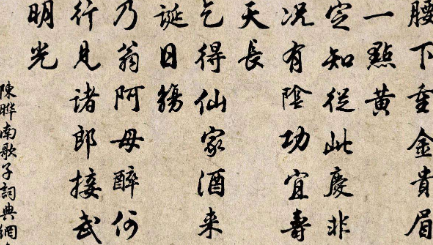 腰下重金貴眉
一點黃
定知從此慶非
况有陰功宜壽
天長
乞得仙家酒来
誕日觴
乃翁阿母醉何
行見諸郎接武
明光
陳曄南歌子詞典網